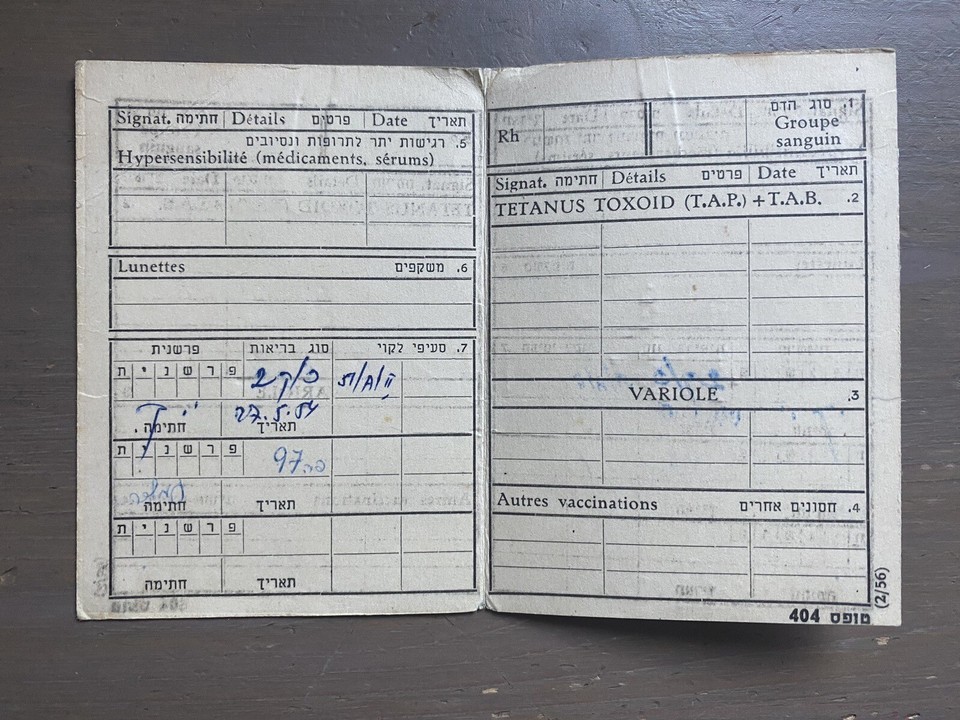 סוג הדם .1
Rh Groupe
sanguin
Signat. חתימה Détails פרטים Date תאריך
TETANUS TOXOID (T.A.P.) + T.A.B. .2
VARIOLE .3
Autres vaccinations חסונים אחרים .4
טופס 404
(2/56)
Signat. חתימה Détails פרטים Date תאריך
רגישות יתר לתרופות ונסיובים .5
Hypersensibilité (médicaments, sérums)
Lunettes משקפים .6
7. סעיפי לקוי סוג בריאות פרשנית
פ ר ש נ י ת
27.5.54
תאריך חתימה
פ ר ש נ י ת
97
תאריך חתימה
פ ר ש נ י ת
תאריך חתימה